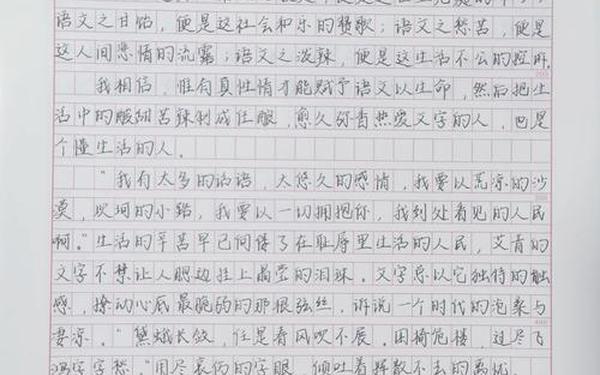 语文之甘饴,便是这社会和乐的赞歌;语文之愁苦,便是
这人间悲情的流露;语文之泼辣,便是这生活不公的控诉。
我相信,唯有真性情才能赋予语文以生命,然后把生
活中的酸甜苦辣制成佳酿,愈久弥香热爱文字的人,也是
个懂生活的人。
“我有太多的话语,太悠久的感情,我要以荒凉的沙
漠,坎坷的小路,我要以一切拥抱你,我到处看见的人民
啊。”生活的辛苦早已侧倦了在耻辱里生活的人民,艾青的
文字不禁让人腮边挂上晶莹的泪珠。文字总以它独特的触
感,撩动心底最脆弱的那根弦丝,诉说一个时代的沧桑与
凄凉。“黛蛾长敛,任是春风吹不展,困倚危楼,过尽飞
鸿字字愁。”用尽哀伤的字眼,倾吐着挥散不去的离愁